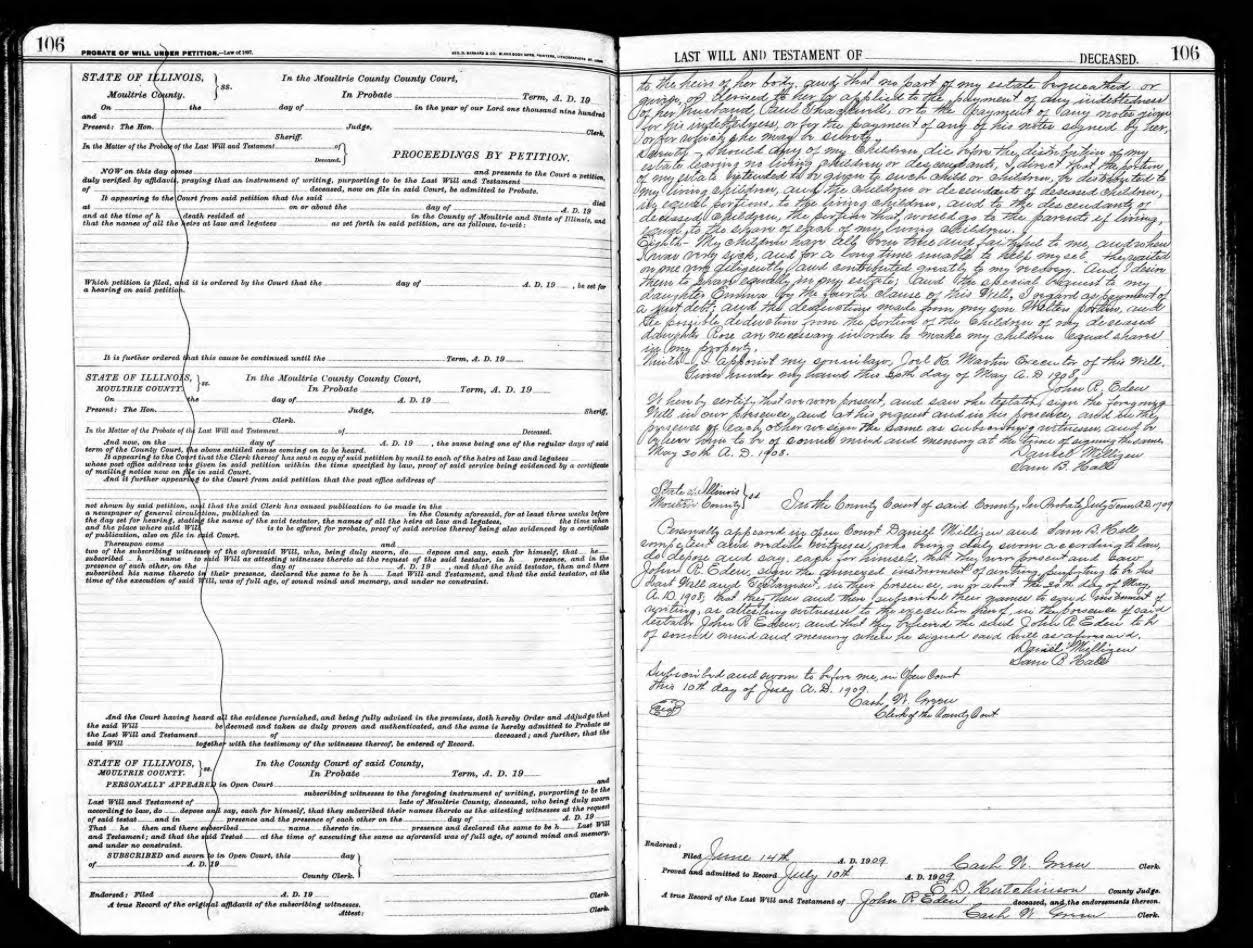 106
PROBATE OF WILL UNDER PETITION.—Law of 1897.
STATE OF ILLINOIS,
Moultrie County.
ss.
In the Moultrie County County Court,
In Probate Term, A. D. 19
On the day of in the year of our Lord one thousand nine hundred
and
Present: The Hon. Judge, Clerk,
Sheriff.
In the Matter of the Probate of the Last Will and Testament of
Deceased.
PROCEEDINGS BY PETITION.
NOW on this day comes and presents to the Court a petition,
duly verified by affidavit, praying that an instrument of writing, purporting to be the Last Will and Testament
of deceased, now on file in said Court, be admitted to Probate.
It appearing to the Court from said petition that the said died
at on or about the day of A. D. 19
and at the time of h death resided at in the County of Moultrie and State of Illinois, and
that the names of all the heirs at law and legatees as set forth in said petition, are as follows, to-wit:
Which petition is filed, and it is ordered by the Court that the day of A. D. 19 , be set for
a hearing on said petition.
It is further ordered that this cause be continued until the Term, A. D. 19
STATE OF ILLINOIS,
MOULTRIE COUNTY.
ss.
In the Moultrie County County Court,
In Probate Term, A. D. 19
On the day of A. D. 19
Present: The Hon. Judge, Sheriff,
Clerk.
In the Matter of the Probate of the Last Will and Testament of Deceased.
And now, on the day of A. D. 19 , the same being one of the regular days of said
term of the County Court, the above entitled cause coming on to be heard.
It appearing to the Court that the Clerk thereof has sent a copy of said petition by mail to each of the heirs at law and legatees
whose post office address was given in said petition within the time specified by law, proof of said service being evidenced by a certificate
of mailing notice now on file in said Court.
And it further appearing to the Court from said petition that the post office address of
not shown by said petition, and that the said Clerk has caused publication to be made in the
a newspaper of general circulation, published in in the County aforesaid, for at least three weeks before
the day set for hearing, stating the name of the said testator, the names of all the heirs at law and legatees, the time when
and the place where said Will is to be offered for probate, proof of said service thereof being also evidenced by a certificate
of publication, also on file in said Court.
Thereupon come and
two of the subscribing witnesses of the aforesaid Will, who, being duly sworn, do depose and say, each for himself, that he
subscribed h name to said Will as attesting witnesses thereto at the request of the said testator, in h presence, and in the
presence of each other, on the day of A. D. 19 , and that the said testator, then and there
subscribed his name thereto in their presence, declared the same to be h Last Will and Testament, and that the said testator, at the
time of the execution of said Will, was of full age, of sound mind and memory, and under no constraint.
And the Court having heard all the evidence furnished, and being fully advised in the premises, doth hereby Order and Adjudge that
the said Will be deemed and taken as duly proven and authenticated, and the same is hereby admitted to Probate as
the Last Will and Testament of deceased; and further, that the
said Will together with the testimony of the witnesses thereof, be entered of Record.
STATE OF ILLINOIS,
MOULTRIE COUNTY.
ss.
In the County Court of said County,
In Probate Term, A. D. 19
PERSONALLY APPEARED in Open Court and
subscribing witnesses to the foregoing instrument of writing, purporting to be the
Last Will and Testament of late of Moultrie County, deceased, who being duly sworn
according to law, do depose and say, each for himself, that they subscribed their names thereto as the attesting witnesses at the request
of said testat and in presence and the presence of each other on the day of A. D. 19
That he then and there subscribed name thereto in presence and declared the same to be h Last Will
and Testament; and that the said Testat at the time of executing the same as aforesaid was of full age, of sound mind and memory,
and under no constraint.
SUBSCRIBED and sworn to in Open Court, this day
of A. D. 19
County Clerk.
Endorsed: Filed A. D. 19 Clerk.
A true Record of the original affidavit of the subscribing witnesses.
Attest: Clerk.
LAST WILL AND TESTAMENT OF DECEASED.
106
to the heirs of her body, and that no part of my estate bequeathed or
given, or devised to her be applied to the payment of any indebtedness
of her husband, Paul Thackwill, or to the payment of any notes given
for his indebtedness, or for the payment of any of his notes signed by her,
or for which she may be security.
Should any of my children die before the distribution of my
estate leaving no living children or descendants, I direct that the portion
of my estate intended to be given to such child or children, be distributed to
my living children, and the children or descendants of deceased children,
in equal portions, to the living children, and to the descendants of
deceased children, the portion that would go to the parents if living,
equal to the share of each of my living children.
Eighth - My children have all been true and faithful to me, and when
I was very sick, and for a long time unable to help myself they waited
on me very diligently and contributed greatly to my recovery. And I desire
them to share equally in my estate; and the special bequest to my
daughter Emma by the fourth clause of this Will, I regard as payment of
a just debt, and the deductions made from my son Walters portion, and
the possible deduction from the portion of the children of my deceased
daughter Rose are necessary in order to make my children equal sharers
in my property.
Ninth - I appoint my soninlaw, Joel K. Martin Executor of this Will.
Given under my hand this 30th day of May A. D. 1908.
John R. Eden
We hereby certify that we were present, and saw the testator sign the foregoing
Will in our presence, and at his request and in his presence, and in the
presence of each other we sign the same as subscribing witnesses, and we
believe him to be of sound mind and memory at the time of signing the same,
May 30th A. D. 1908.
Daniel Milligen
Sam B. Hall
State of Illinois
Moultrie County
ss
In the County Court of said County, In Probate, July Term A.D. 1909
Personally appeared in open Court Daniel Milligen and Sam B. Hall
competent and credible witnesses, who being duly sworn according to law,
do depose and say, each for himself, that they were present and saw
John R. Eden, sign the annexed instrument of writing purporting to be his
Last Will and Testament, in their presence, on or about the 30th day of May
A. D. 1908; that they then and there subscribed their names to said instrument of
writing, as attesting witnesses to the execution thereof, in the presence of said
testator John R. Eden; and that they believed the said John R. Eden to be
of sound mind and memory when he signed said will as aforesaid.
Daniel Milligen
Sam B. Hall
Subscribed and sworn to before me, in Open Court
this 10th day of July A. D. 1909.
Cash W. Green
Clerk of the County Court
Endorsed:
Filed June 14th A. D. 1909 Cash W. Green Clerk.
Proved and admitted to Record July 10th A. D. 1909.
E. D. Hutchinson County Judge.
A true Record of the Last Will and Testament of John R Eden deceased, and the endorsements thereon.
Cash W. Green Clerk.